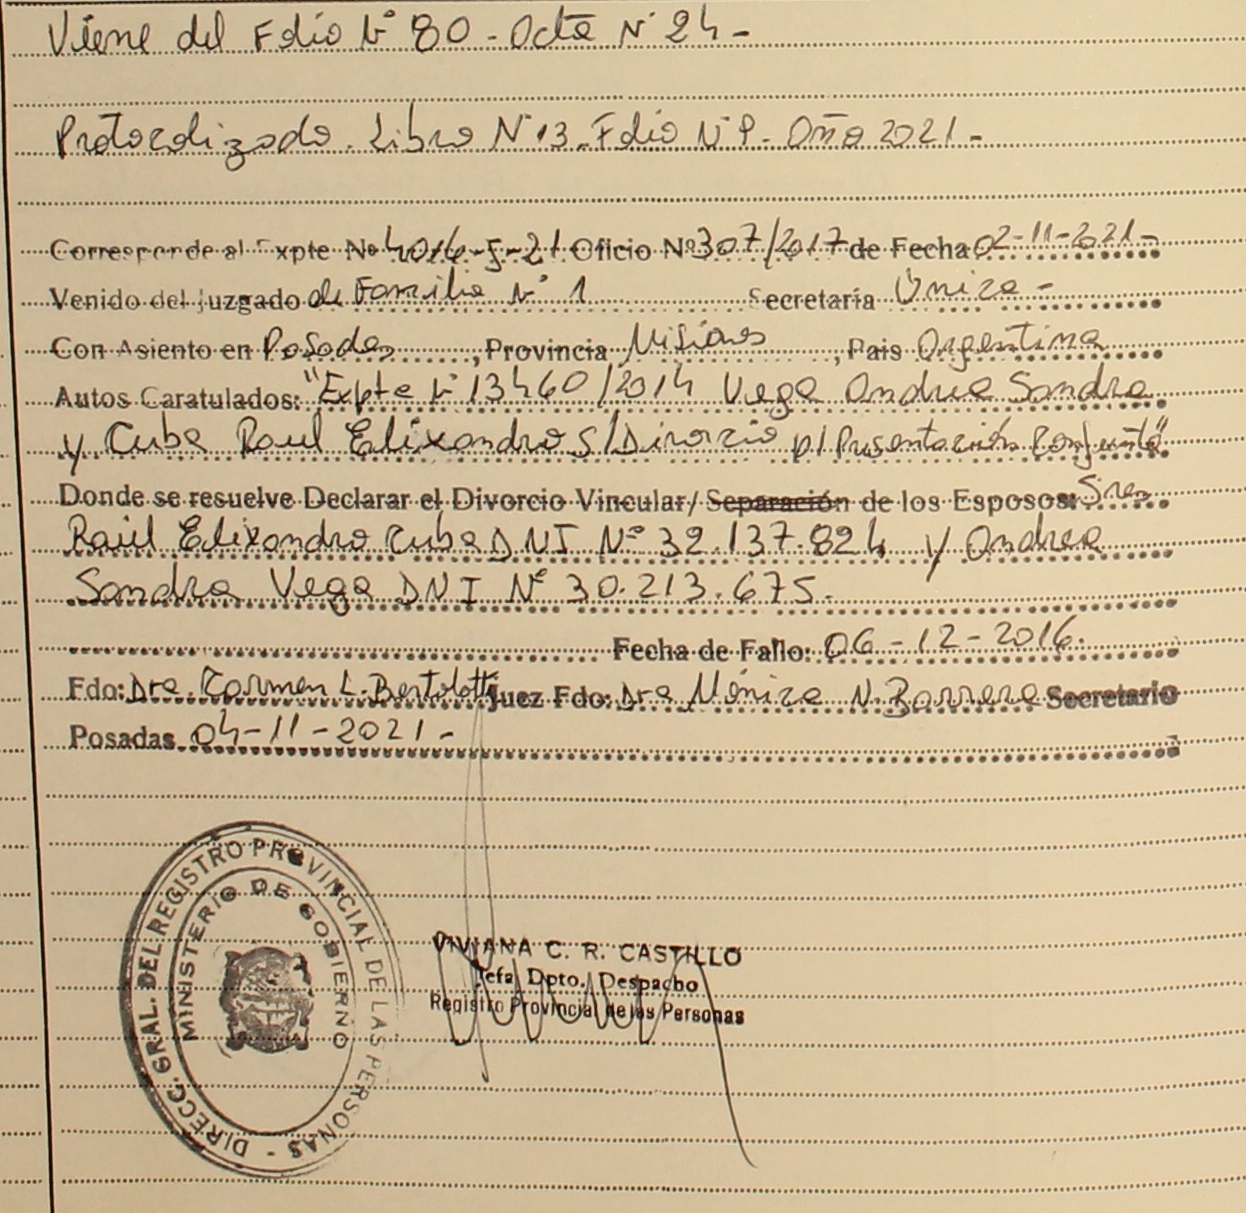 Viene del Folio Nº 80 - Acta Nº 24 -
Protocolizado. Libro Nº 13. Folio Nº 9. Año 2021 -
Corresponde al Expte Nº 4016-F-21 Oficio Nº 307/2017 de Fecha 02-11-2021 -
Venido del Juzgado de Familia Nº 1 Secretaría Única -
Con Asiento en Posadas, Provincia Misiones, Pais Argentina
Autos Caratulados: "Expte Nº 13460/2014 Vega Andrea Sandra
y Cuba Raul Elixandro S/Divorcio p/ Presentación Conjunta"
Donde se resuelve Declarar el Divorcio Vincular/ Separación de los Esposos: Sres
Raúl Elixandro Cuba DNI Nº 32.137.824 y Andrea
Sandra Vega DNI Nº 30.213.675.
Fecha de Fallo: 06-12-2016.
Fdo: Dra. Carmen L. Bertolotti Juez Fdo: Dra Mónica N. Barrera Secretario
Posadas 04-11-2021 -
DIRECC. GRAL. DEL REGISTRO PROVINCIAL DE LAS PERSONAS -
MINISTERIO DE GOBIERNO
VIVIANA C. R. CASTILLO
Jefa Dpto. Despacho
Registro Provincial de las Personas